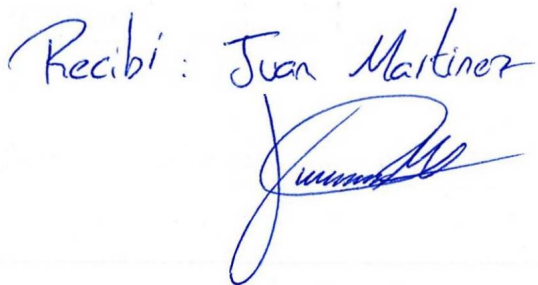 Recibí: Juan Martinez